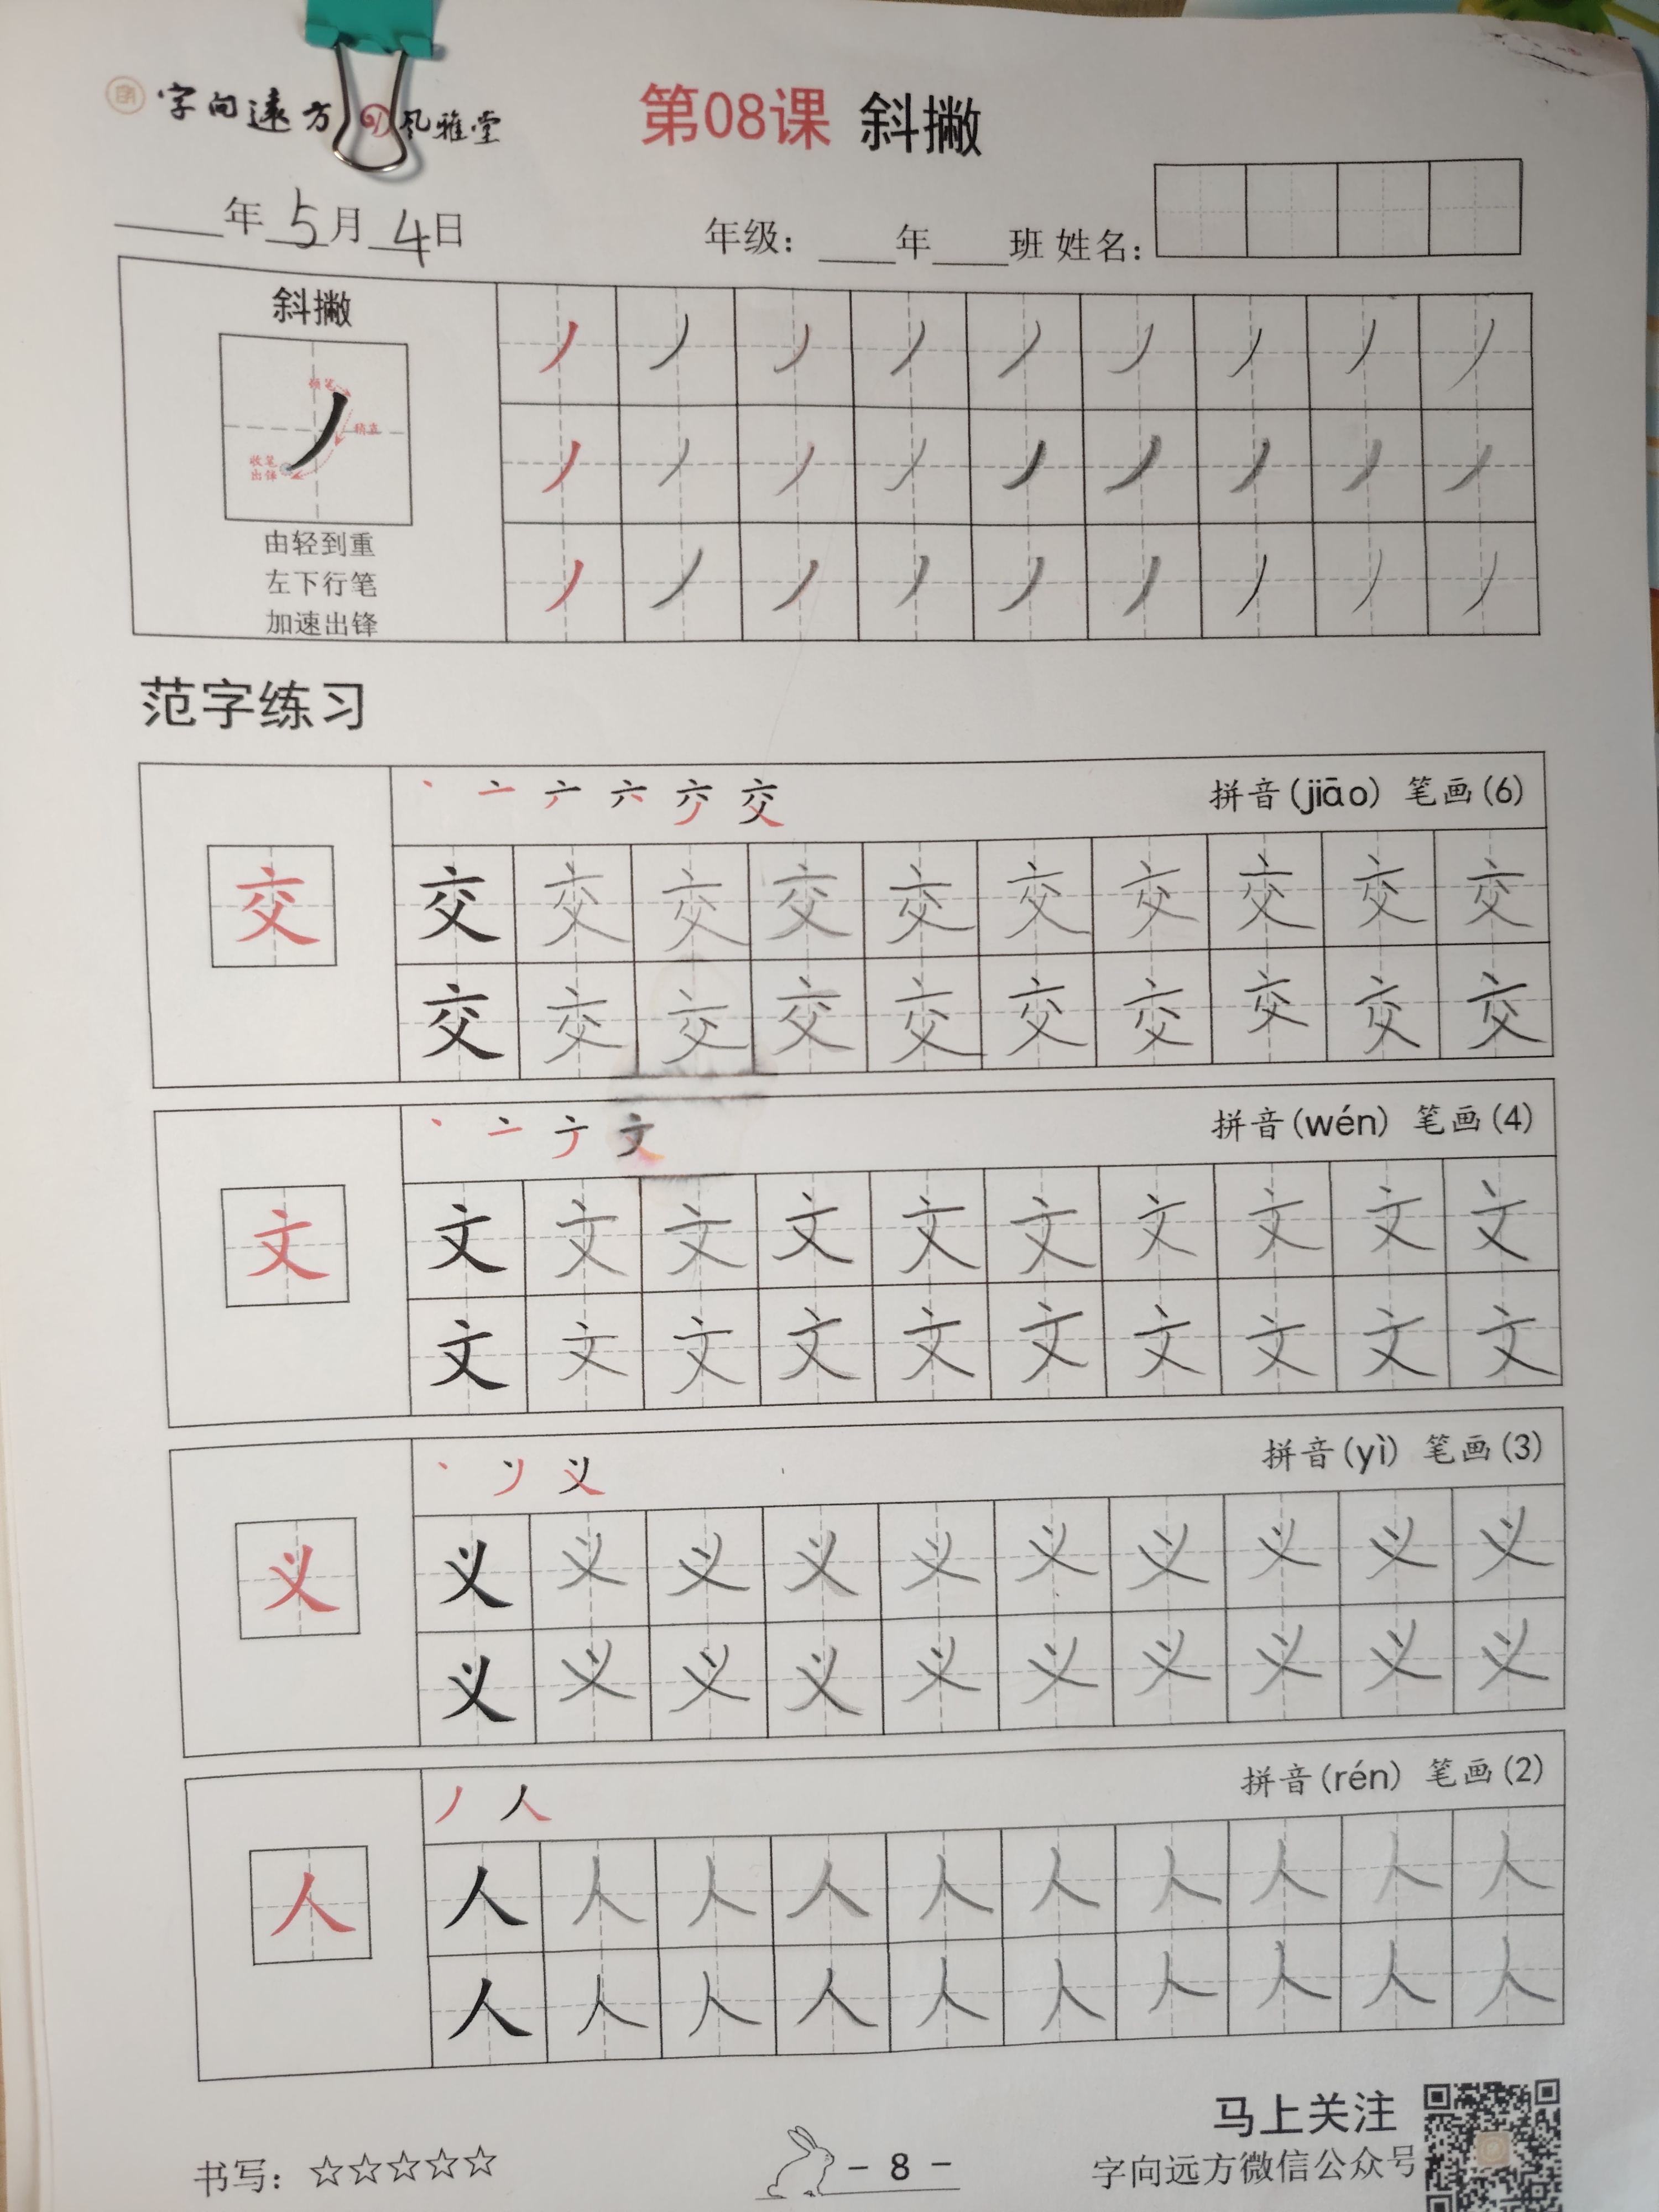 字向远方 风雅堂
第08课 斜撇
年 5月 4日 年级: 年 班 姓名:
斜撇
顿笔
稍直
收笔
出锋
由轻到重
左下行笔
加速出锋
范字练习
拼音(jiāo) 笔画(6)
交 交 交 交 交 交 交 交 交 交 交
交 交 交 交 交 交 交 交 交 交
拼音(wén) 笔画(4)
文 文 文 文 文 文 文 文 文 文 文
文 文 文 文 文 文 文 文 文 文
拼音(yì) 笔画(3)
义 义 义 义 义 义 义 义 义 义 义
义 义 义 义 义 义 义 义 义 义
拼音(rén) 笔画(2)
人 人 人 人 人 人 人 人 人 人 人
人 人 人 人 人 人 人 人 人 人
马上关注
书写: ☆☆☆☆☆ - 8 - 字向远方微信公众号